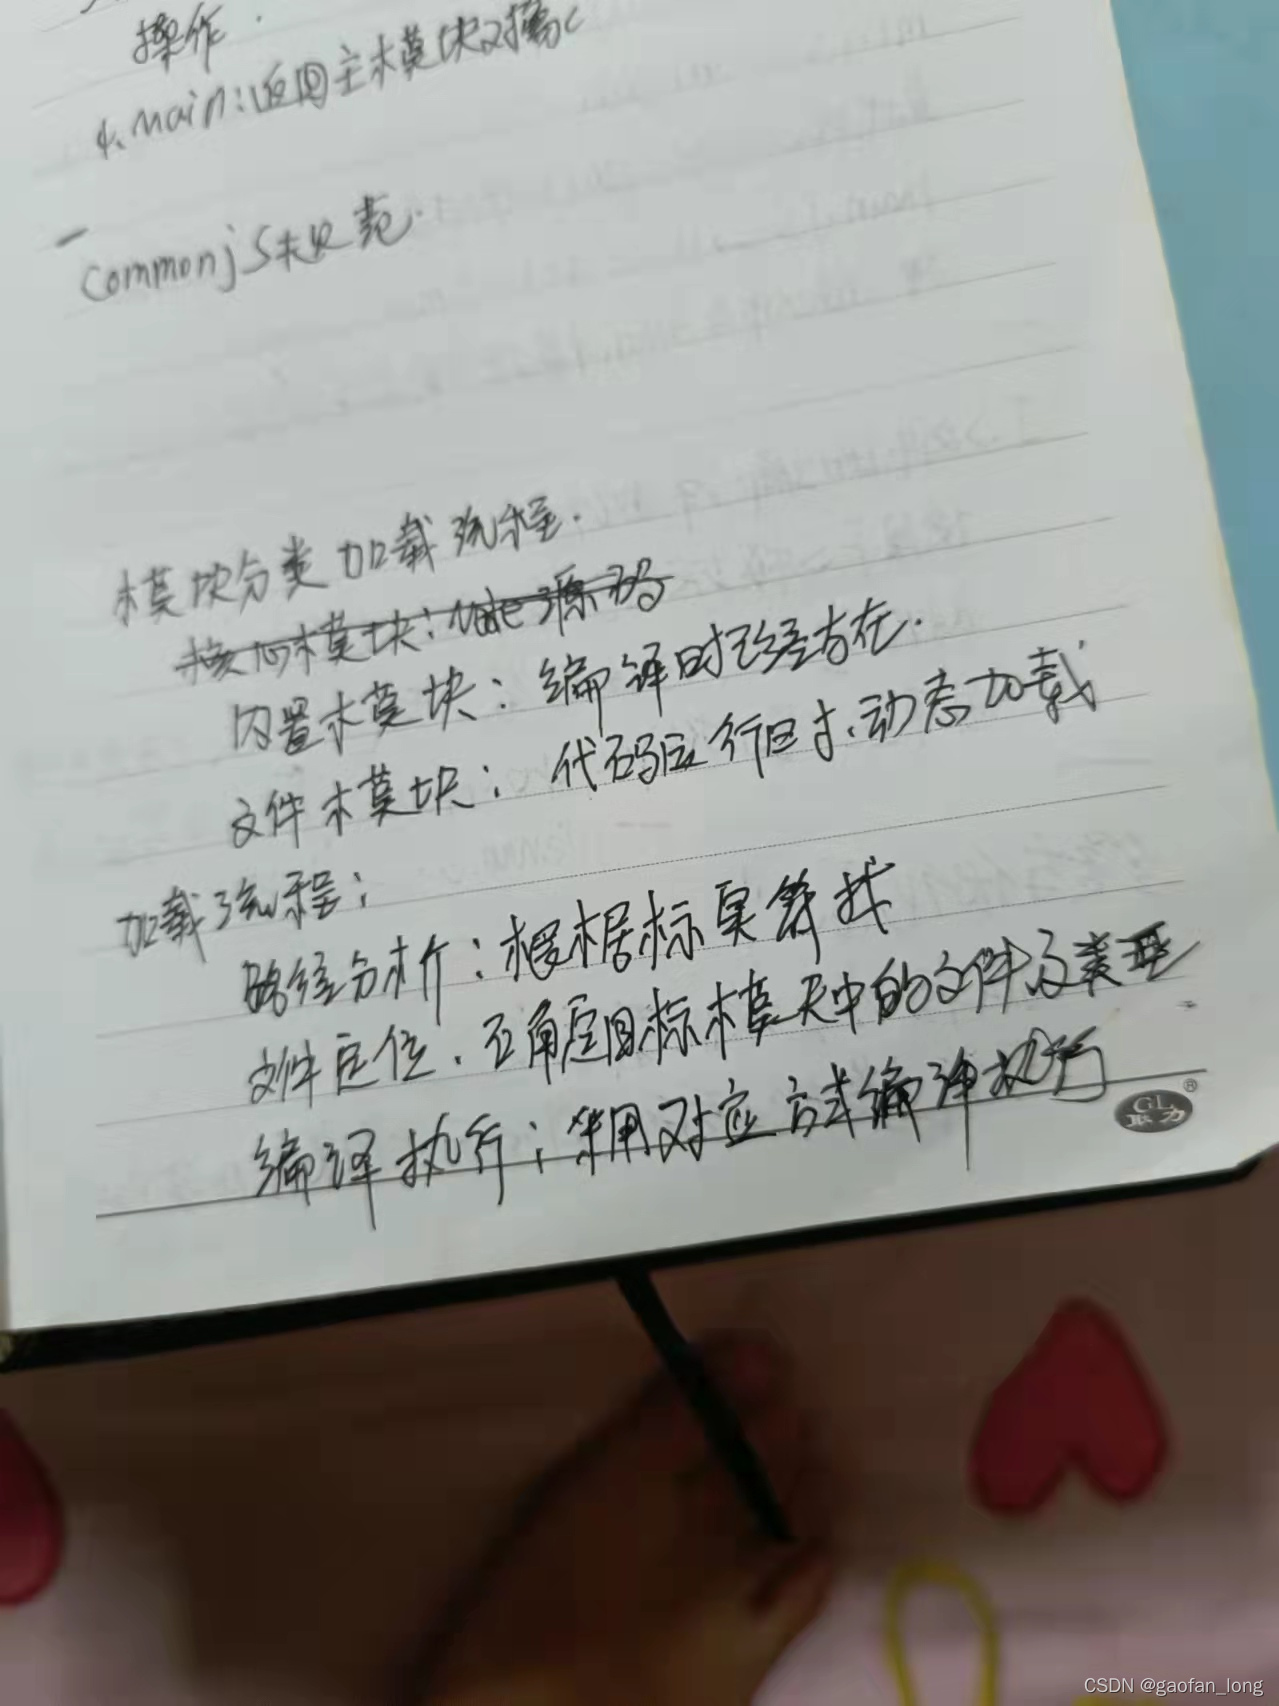 操作.
4. main:返回主模块对象
commonjs规范.
模块分类 加载流程.
核心模块: Node源码
内置模块: 编译时已经存在.
文件模块: 代码运行时.动态加载
加载流程:
路径分析: 根据标识符查找
文件定位. 确定目标模块中的文件及类型
编译执行: 采用对应方式编译执行
GL
联力
®
CSDN @gaofan_long